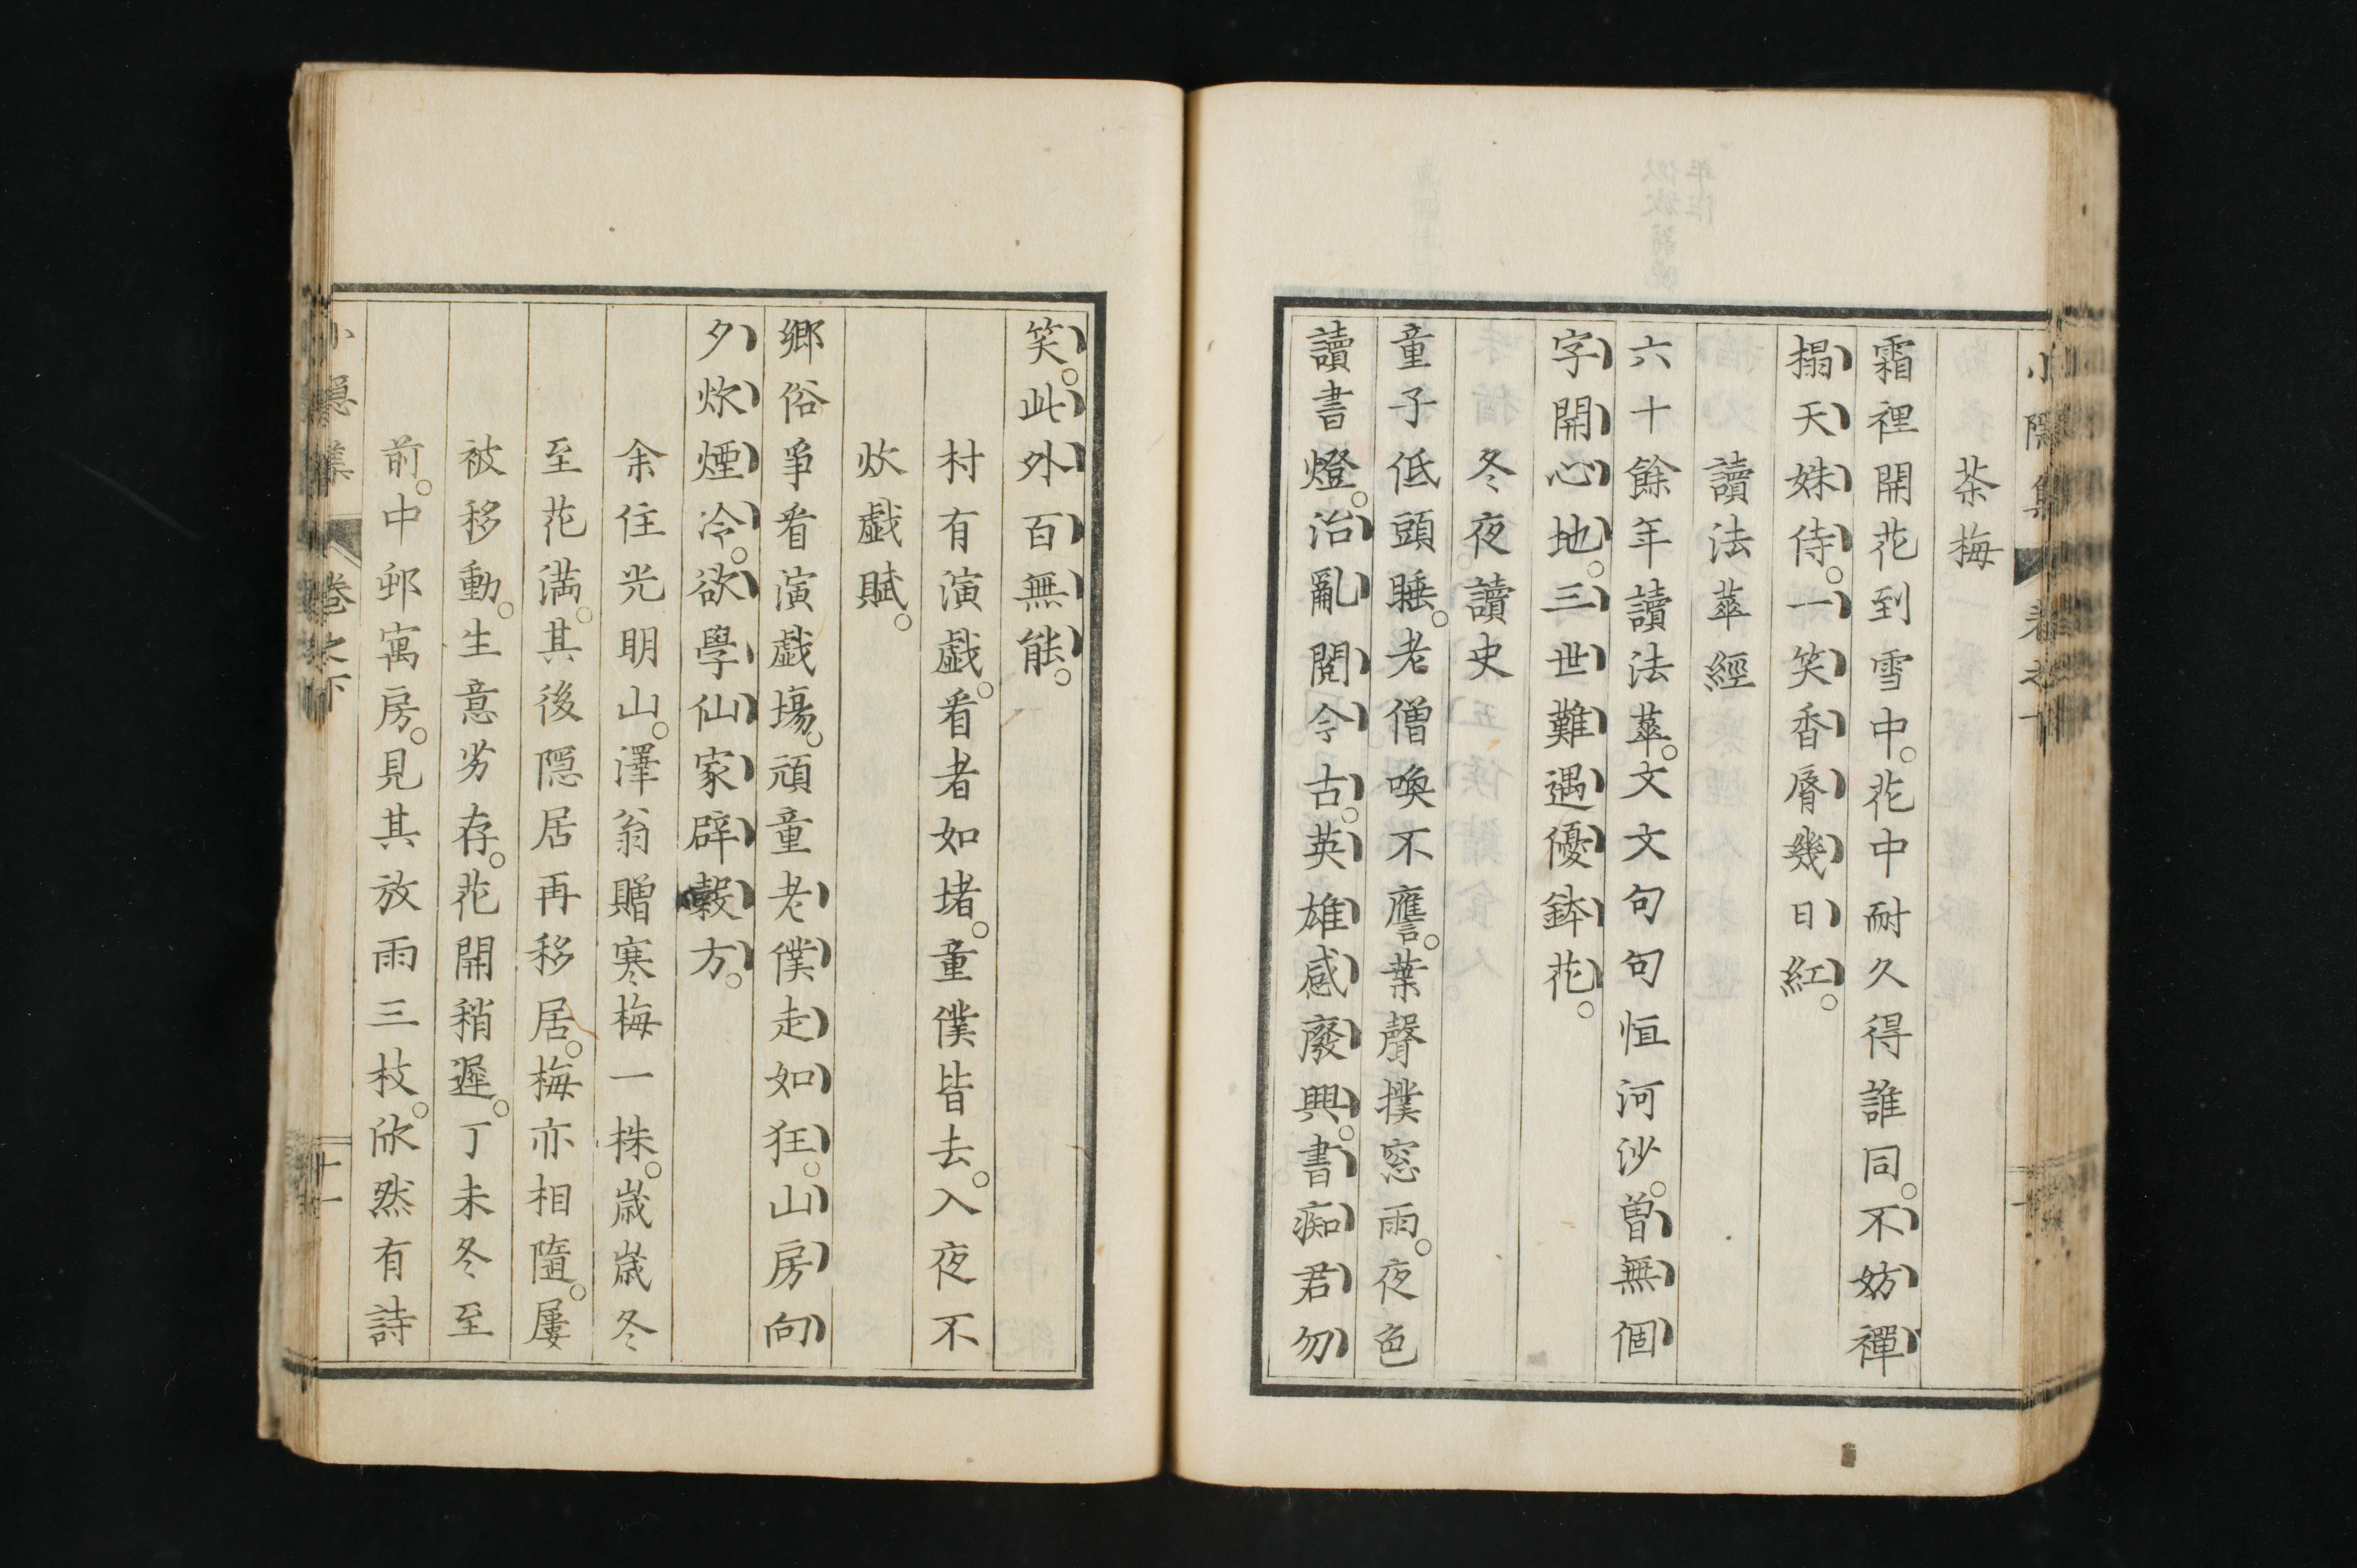 小隱集 卷之下
茶梅
霜裡開花到雪中。花中耐久得誰同。不妨禪
榻天姝侍。一笑香脣幾日紅。
讀法華經
六十餘年讀法華。文文句句恒河沙。曽無個
字開心地。三世難遇優鉢花。
冬夜讀史
童子低頭睡。老僧喚不譍。葉聲撲窓雨。夜色
讀書燈。治亂閱今古。英雄感廢興。書痴君勿
笑。此外百無能。
村有演戯。看者如堵。童僕皆去。入夜不
炊戯賦。
鄉俗爭看演戯場。頑童老僕走如狂。山房向
夕炊煙冷。欲學仙家辟穀方。
余住光明山。澤翁贈寒梅一株。歳歳冬
至花満。其後隠居再移居。梅亦相隨。屢
被移動。生意労存。花開稍遲。丁未冬至
前。中邨寓房。見其放雨三枝。欣然有詩
小隱集 卷之下 十一